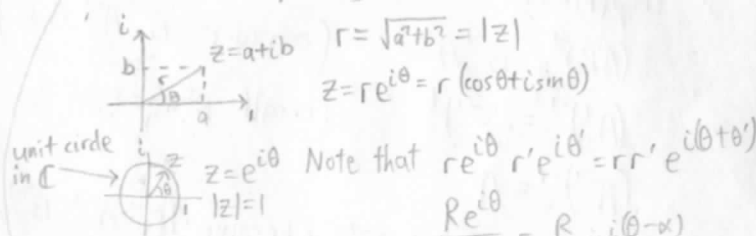 i
z=a+ib
r=√(a²+b²)=|z|
b
r
θ
a
1
z=re^{iθ}=r(cosθ+isinθ)
unit circle
in ℂ
i
z
θ
1
z=e^{iθ}
|z|=1
Note that re^{iθ} r'e^{iθ'}=rr'e^{i(θ+θ')}
Re^{iθ}
= R i(θ-α)